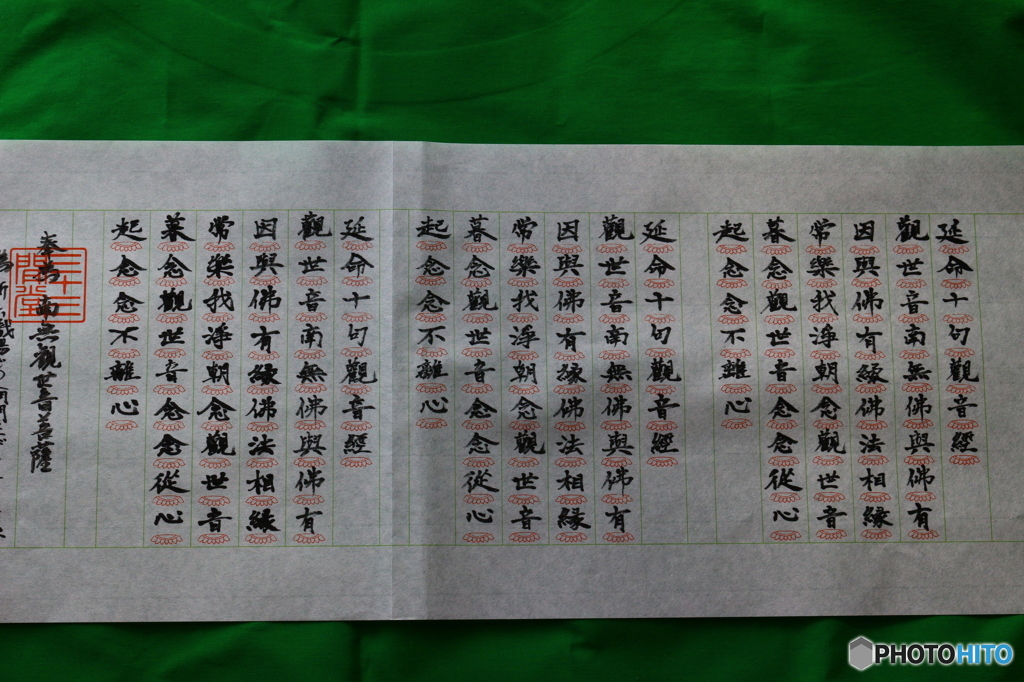 延命十句觀音經
觀世音南無佛與佛有
因與佛有縁佛法相縁
常樂我淨朝念觀世音
暮念觀世音念念從心
起念念不離心
延命十句觀音經
觀世音南無佛與佛有
因與佛有縁佛法相縁
常樂我淨朝念觀世音
暮念觀世音念念從心
起念念不離心
延命十句觀音經
觀世音南無佛與佛有
因與佛有縁佛法相縁
常樂我淨朝念觀世音
暮念觀世音念念從心
起念念不離心
奉爲 南無觀世音菩薩
三十三間堂
PHOTOHITO